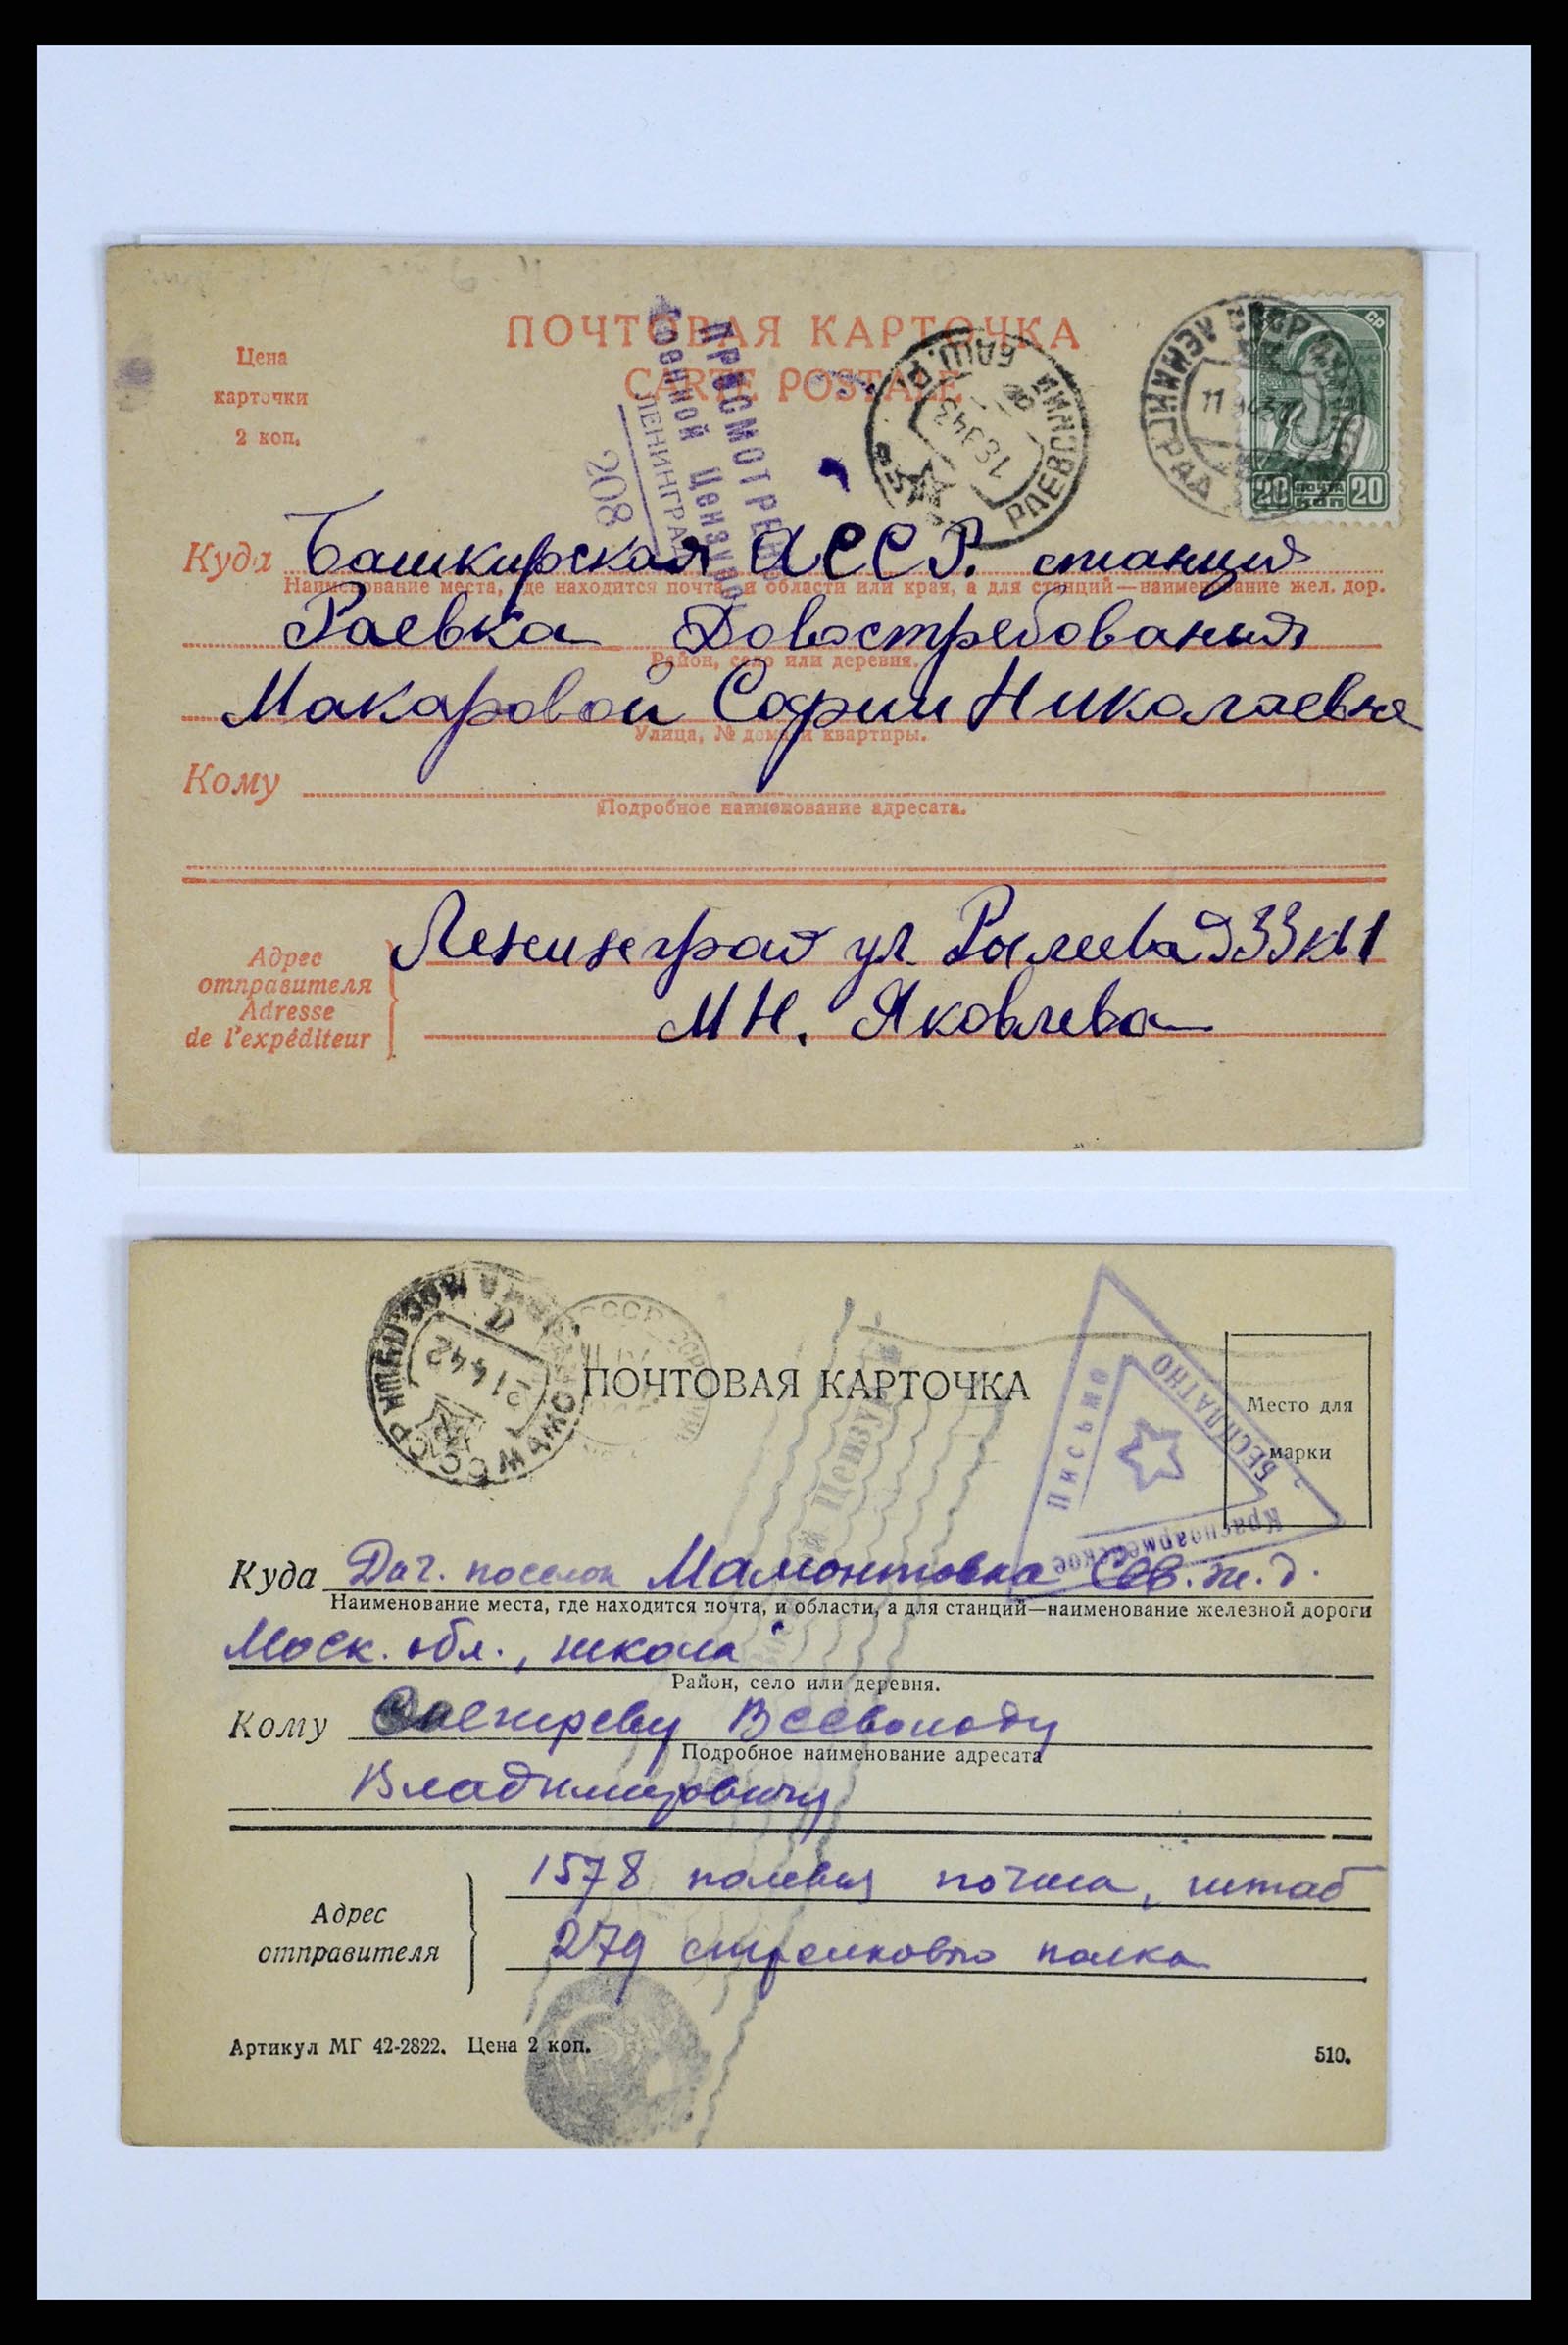 ПОЧТОВАЯ КАРТОЧКА
CARTE POSTALE
Цена
карточки
2 коп.
ПРОСМОТРЕНО
Военной Цензурой
ЛЕНИНГРАД
208
РАЕВСКИЙ БАШ.
ЛЕНИНГРАД
20 ПОЧТА КОП 20
Куда Башкирская АССР. станция
Наименование места, где находится почта, и области или края, а для станций—наименование жел. дор.
Раевка Довостребования
Район, село или деревня.
Макаровой Софии Николаевне
Улица, № дома и квартиры.
Кому
Подробное наименование адресата.
Адрес
отправителя
Adresse
de l'expéditeur
Ленинград ул Рылеева д33 кв1
М Н. Яковлева
ПОЧТОВАЯ КАРТОЧКА
Место для
марки
Письмо
Красноармейское
БЕСПЛАТНО
Военной Цензурой
Куда Дач. поселок Мамонтовка Сев. ж. д.
Наименование места, где находится почта, и области, а для станций—наименование железной дороги
Моск. обл., школа
Район, село или деревня.
Кому Всеволоду
Подробное наименование адресата
Владимировичу
Адрес
отправителя
1578 полевая почта, штаб
279 стрелкового полка
Артикул МГ 42-2822. Цена 2 коп.
510.